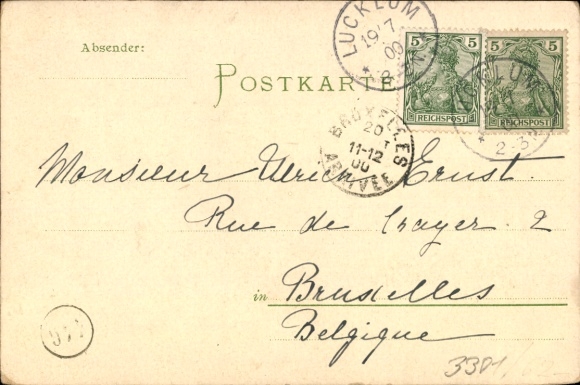 LUCKLUM
19/7
00
Absender:
POSTKARTE
5 5
5 5
REICHSPOST
REICHSPOST
LUCKLUM
2-3
BRUXELLES
20
11-12
00
ARRIVÉE
Monsieur Ulrich Ernst.
Rue de Crayer. 2
in Bruxelles
Belgique
3301